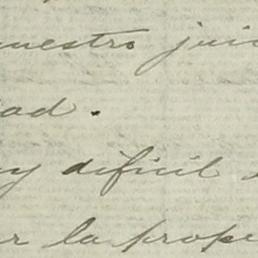 nuestro jui
ad.
y dificil
r la prope